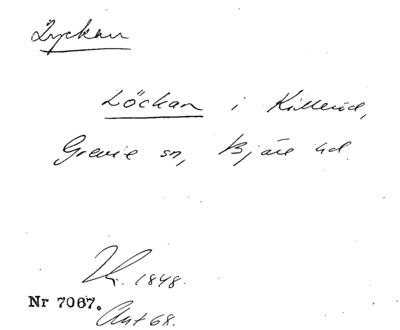 Lyckan
Löckan i Killeröd,
Grevie sn, Bjäre hd.
1848.
Nr 7067.
Ant 68.